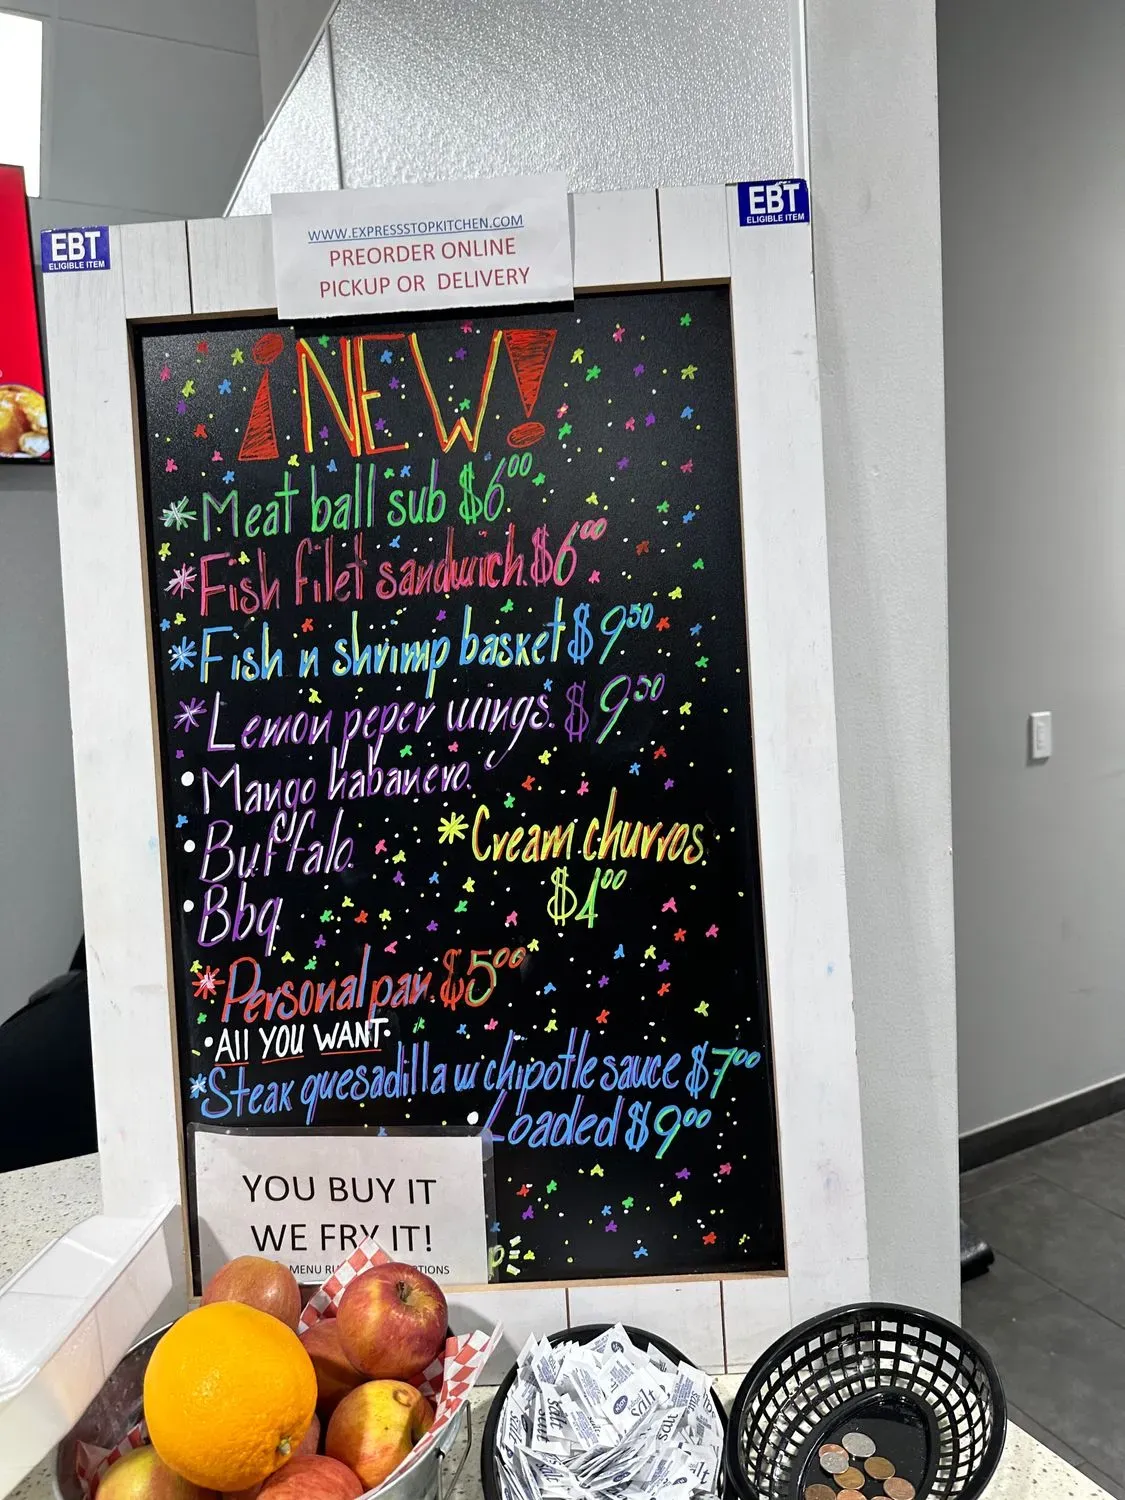 EBT
ELIGIBLE ITEM
WWW.EXPRESSSTOPKITCHEN.COM
PREORDER ONLINE
PICKUP OR DELIVERY
EBT
ELIGIBLE ITEM
¡NEW!
*Meat ball sub $6.00
*Fish filet sandwich $6.00
*Fish n shrimp basket $9.50
*Lemon peper wings. $9.50
•Mango habanero.
•Buffalo.
•Bbq
*Cream churros.
$4.00
*Personal pan. $5.00
•All YOU WANT•
*Steak quesadilla w chipotle sauce $7.00
•Loaded $9.00
YOU BUY IT
WE FRY IT!
MENU
salt
salt
salt